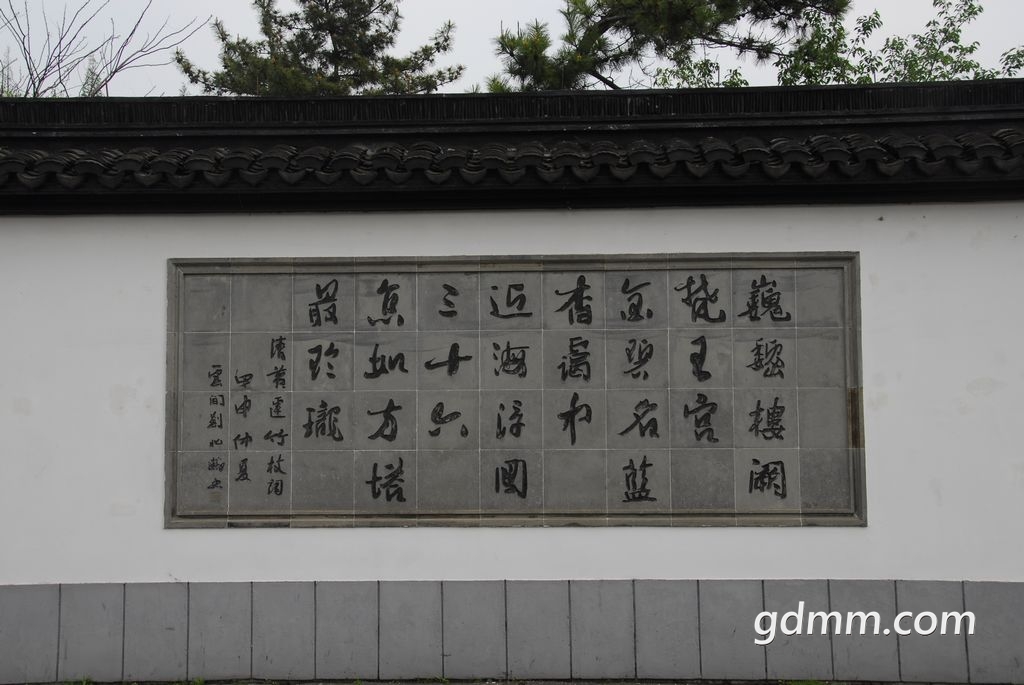 巍巍樓閣
梵王宮
金碧名藍
杳靄中
近海浮圖
三十六
怎如方塔
最玲瓏
清黃霆竹枝詞
甲申仲夏
雲間劉兆麟書
gdmm.com